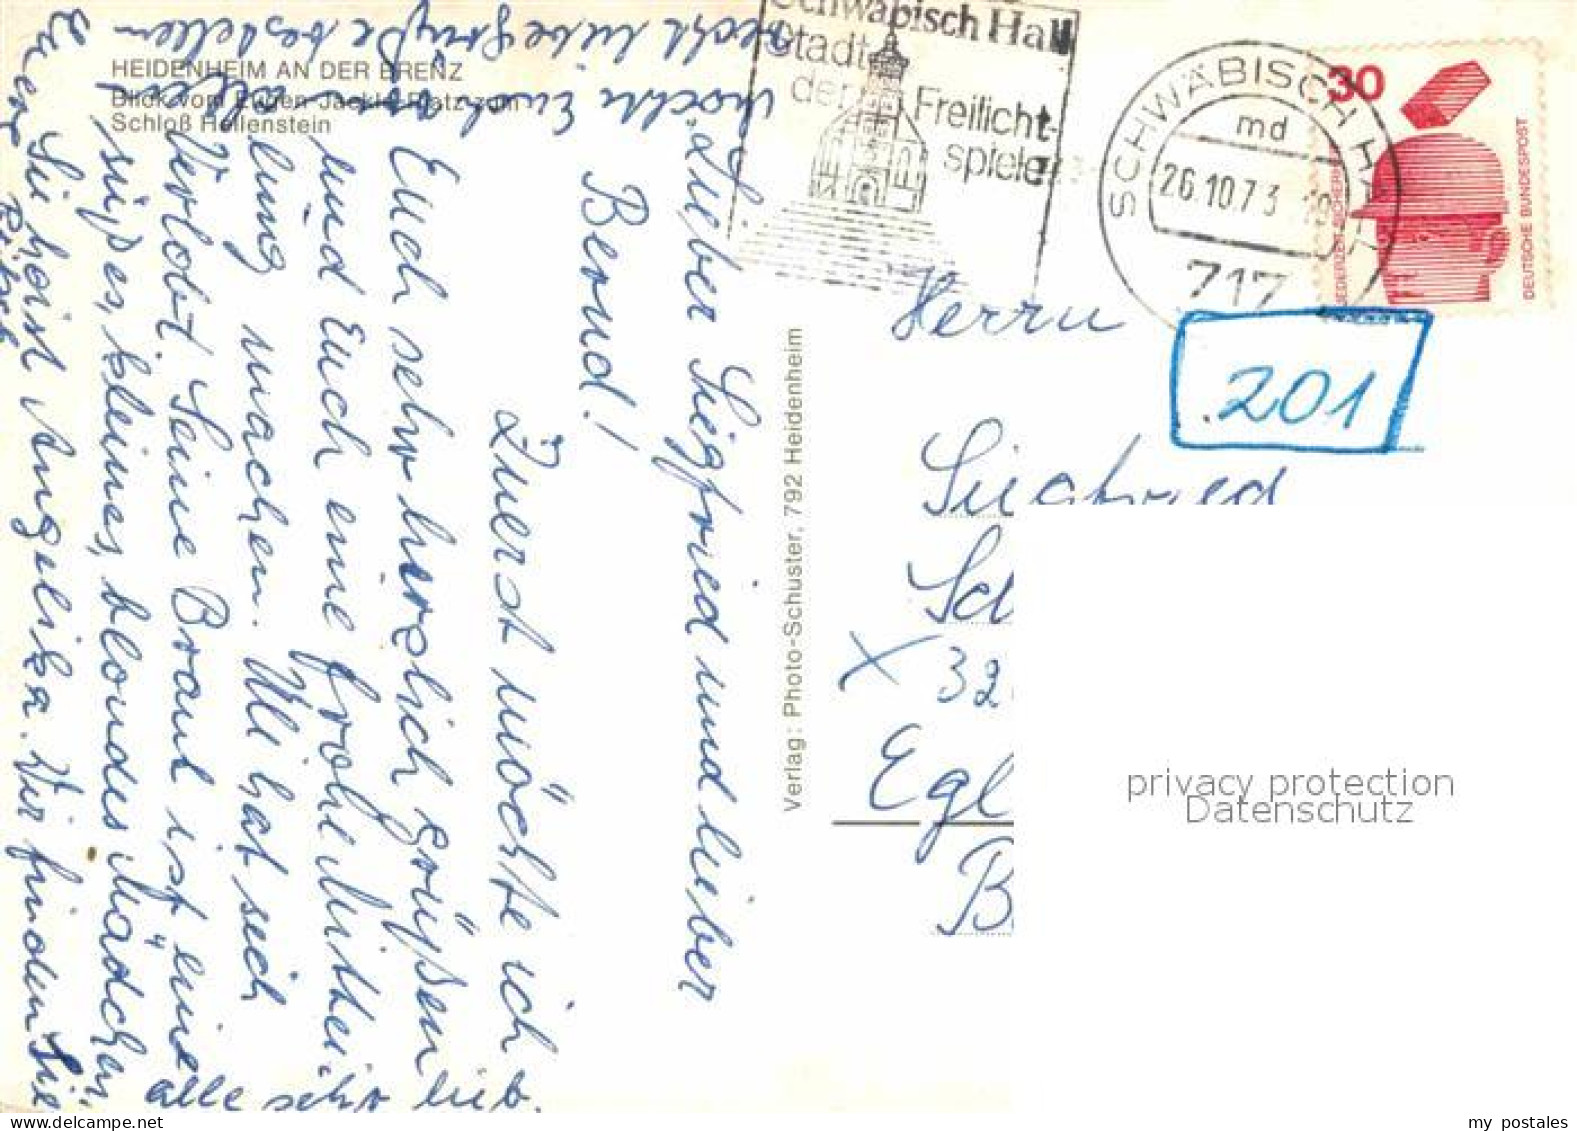 HEIDENHEIM AN DER BRENZ
Blick vom Eugen-Jaekle-Platz zum
Schloß Hellenstein
Lieber Siegfried und lieber
Bernd!
Zuerst möchte ich
Euch sehr herzlich grüßen
und Euch eine frohe Mittei-
lung machen. Uli hat sich
Verlobt. Seine Braut ist ein
süßes, kleines, blondes Mädchen
Sie heist Angelika. Wir finden Sie
alle sehr lieb.
möchte Euch von
recht liebe Grüße bestellen
Eure
Verlag: Photo-Schuster, 792 Heidenheim
Schwäbisch Hall
Stadt
der Freilicht-
spiele
SCHWÄBISCH HALL
md
26.10.73
717
30
JEDERZEIT SICHERHEIT
DEUTSCHE BUNDESPOST
201
Herrn
Siegfried
Sch
X 32
Egl
B
privacy protection
Datenschutz
my postales